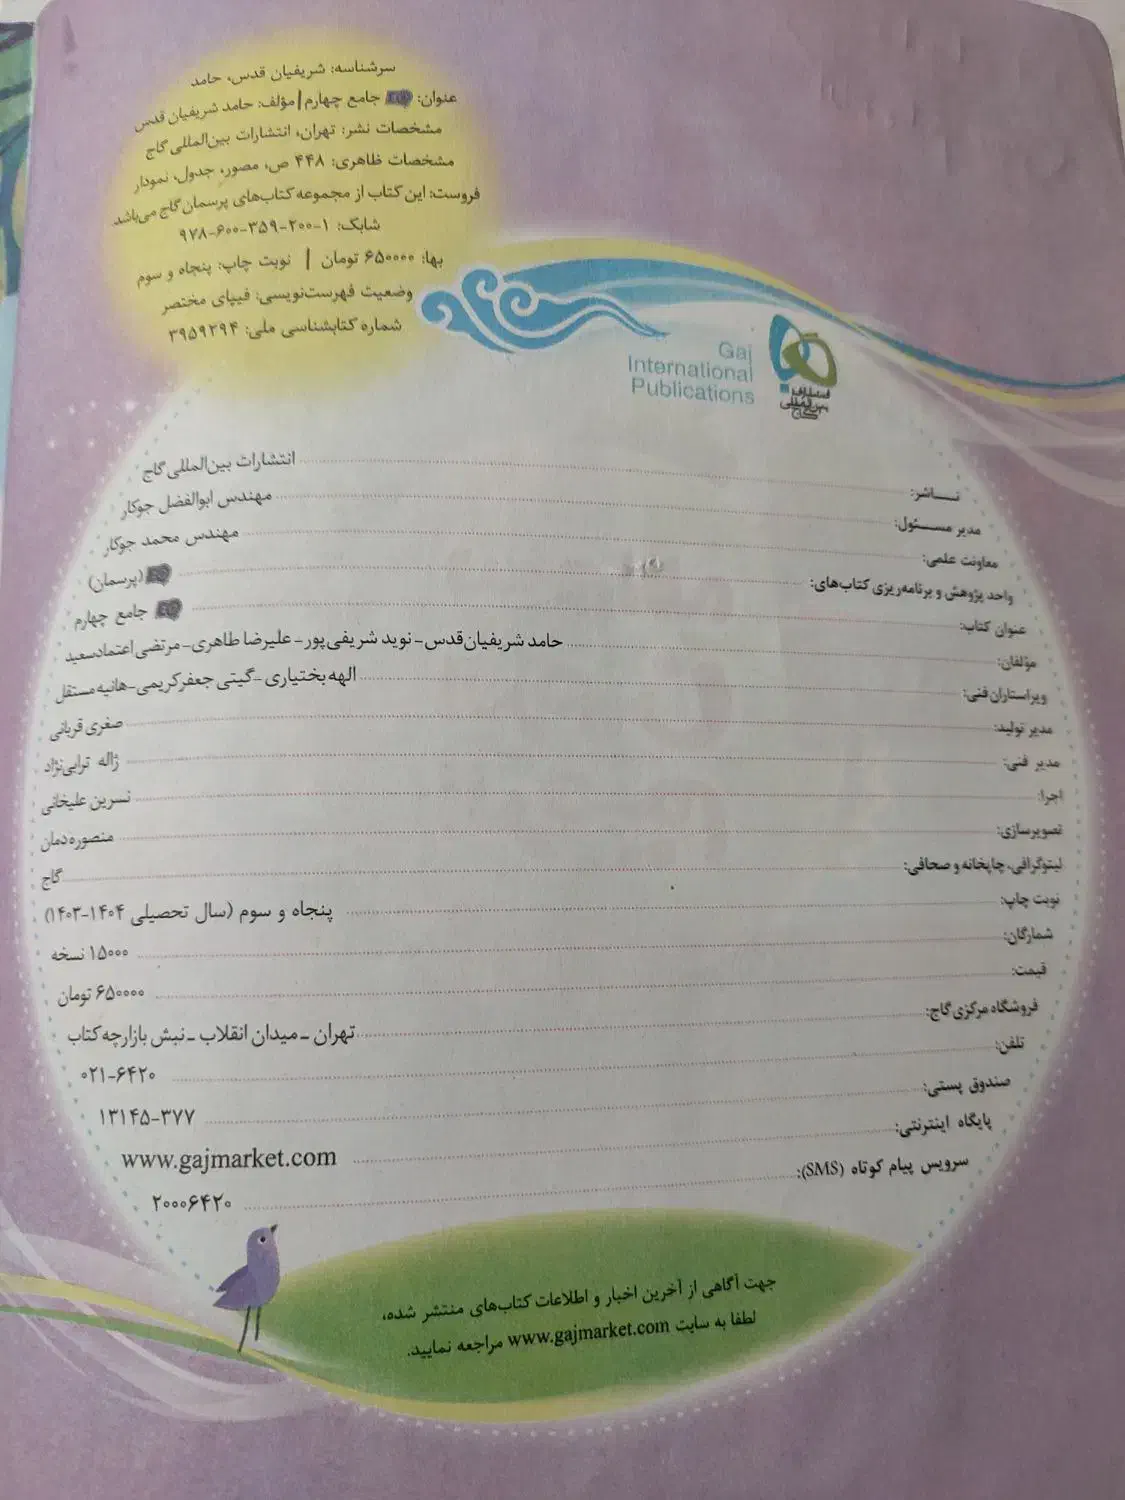 سرشناسه: شریفیان قدس، حامد
عنوان: جامع چهارم | مؤلف: حامد شریفیان قدس
مشخصات نشر: تهران، انتشارات بین‌المللی گاج
مشخصات ظاهری: ۴۴۸ ص، مصور، جدول، نمودار
فروست: این کتاب از مجموعه کتاب‌های پرسمان گاج می‌باشد.
شابک: ۱-۲۰۰-۳۵۹-۶۰۰-۹۷۸
بها: ۶۵۰۰۰۰ تومان | نوبت چاپ: پنجاه و سوم
وضعیت فهرست‌نویسی: فیپای مختصر
شماره کتابشناسی ملی: ۳۹۵۹۲۹۴
Gaj
International
Publications
انتشارات
بین‌المللی
گاج
نـــاشر: انتشارات بین‌المللی گاج
مدیر مســئول: مهندس ابوالفضل جوکار
معاونت علمی: مهندس محمد جوکار
واحد پژوهش و برنامه‌ریزی کتاب‌های: (پرسمان)
عنوان کتاب: جامع چهارم
مؤلفان: حامد شریفیان‌قدس - نوید شریفی‌پور - علیرضا طاهری - مرتضی اعتمادسعید
ویراستاران فنی: الهه بختیاری - گیتی جعفرکریمی - هانیه مستقل
مدیر تولید: صغری قربانی
مدیر فنی: ژاله ترابی‌نژاد
اجرا: نسرین علیخانی
تصویرسازی: منصوره دمان
لیتوگرافی، چاپخانه و صحافی: گاج
نوبت چاپ: پنجاه و سوم (سال تحصیلی ۱۴۰۴-۱۴۰۳)
شمارگان: ۱۵۰۰۰ نسخه
قیمت: ۶۵۰۰۰۰ تومان
فروشگاه مرکزی گاج: تهران - میدان انقلاب - نبش بازارچه کتاب
تلفن: ۰۲۱-۶۴۲۰
صندوق پستی: ۱۳۱۴۵-۳۷۷
پایگاه اینترنتی: www.gajmarket.com
سرویس پیام کوتاه (SMS): ۲۰۰۰۶۴۲۰
جهت آگاهی از آخرین اخبار و اطلاعات کتاب‌های منتشر شده،
لطفا به سایت www.gajmarket.com مراجعه نمایید.